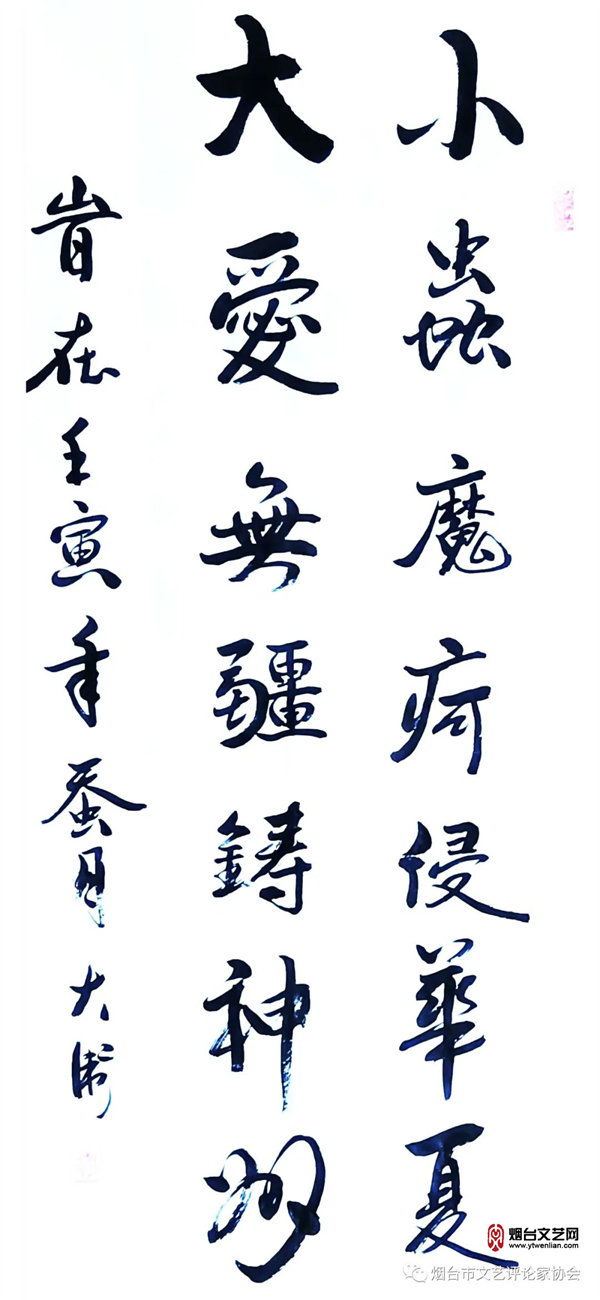 小蟲魔疴侵華夏
大愛無疆鑄神州
旹在壬寅年蚕月大
烟台文艺网
www.ytwenlian.com
烟台市文艺评论家协会